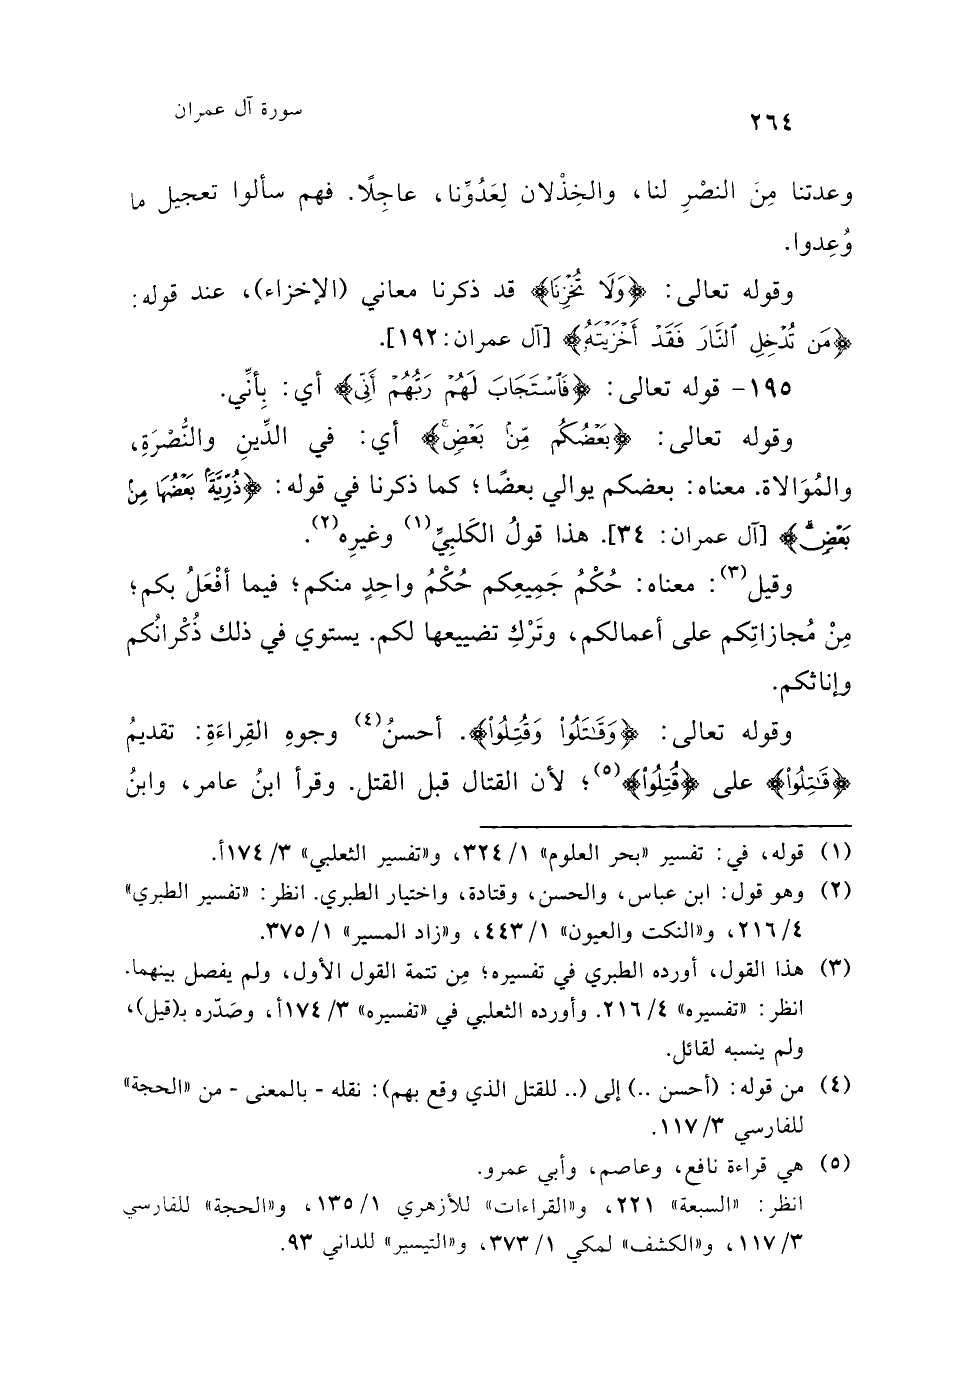 ٢٦٤
سورة آل عمران
وعدتنا مِنَ النصْرِ لنا، والخِذْلان لِعَدُوِّنا، عاجِلًا. فهم سألوا تعجيل ما
وُعِدوا.
وقوله تعالى: ﴿وَلَا تُخْزِنَا﴾ قد ذكرنا معاني (الإخزاء)، عند قوله:
﴿مَن تُدْخِلِ ٱلنَّارَ فَقَدْ أَخْزَيْتَهُۥ﴾ [آل عمران: ١٩٢].
١٩٥- قوله تعالى: ﴿فَٱسْتَجَابَ لَهُمْ رَبُّهُمْ أَنِّى﴾ أي: بِأنِّي.
وقوله تعالى: ﴿بَعْضُكُم مِّنۢ بَعْضٍۖ﴾ أي: في الدِّينِ والنُّصْرَةِ،
والمُوَالاة. معناه: بعضكم يوالي بعضًا؛ كما ذكرنا في قوله: ﴿ذُرِّيَّةًۢ بَعْضُهَا مِنۢ
بَعْضٍۗ﴾ [آل عمران: ٣٤]. هذا قولُ الكَلبِيِّ(١) وغيرِه(٢).
وقيل(٣): معناه: حُكْمُ جَمِيعِكم حُكْمُ واحِدٍ منكم؛ فيما أفْعَلُ بكم؛
مِنْ مُجازاتِكم على أعمالكم، وتَرْكِ تضييعها لكم. يستوي في ذلك ذُكْرانُكم
وإناثكم.
وقوله تعالى: ﴿وَقَٰتَلُوا۟ وَقُتِلُوا۟﴾. أحسنُ(٤) وجوهِ القِراءَةِ: تقديمُ
﴿قَٰتِلُوا۟﴾ على ﴿قُتِلُوا۟﴾(٥)؛ لأن القتال قبل القتل. وقرأ ابنُ عامر، وابنُ
(١) قوله، في: تفسير «بحر العلوم» ١/ ٣٢٤، و«تفسير الثعلبي» ٣/ ١٧٤أ.
(٢) وهو قول: ابن عباس، والحسن، وقتادة، واختيار الطبري. انظر: «تفسير الطبري»
٤/ ٢١٦، و«النكت والعيون» ١/ ٤٤٣، و«زاد المسير» ١/ ٣٧٥.
(٣) هذا القول، أورده الطبري في تفسيره؛ مِن تتمة القول الأول، ولم يفصل بينهما.
انظر: «تفسيره» ٤/ ٢١٦. وأورده الثعلبي في «تفسيره» ٣/ ١٧٤أ، وصَدّره بـ(قيل)،
ولم ينسبه لقائل.
(٤) من قوله: (أحسن ..) إلى (.. للقتل الذي وقع بهم): نقله - بالمعنى - من «الحجة»
للفارسي ٣/ ١١٧.
(٥) هي قراءة نافع، وعاصم، وأبي عمرو.
انظر: «السبعة» ٢٢١، و«القراءات» للأزهري ١/ ١٣٥، و«الحجة» للفارسي
٣/ ١١٧، و«الكشف» لمكي ١/ ٣٧٣، و«التيسير» للداني ٩٣.